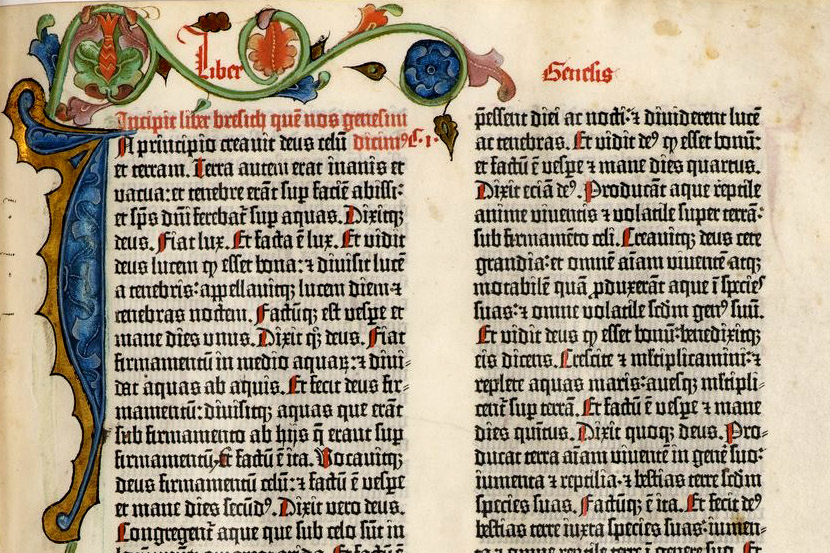 Liber
Genesis
Incipit liber bresich quē nos genesim
A principio creauit deus celū dicim⁹ C. i.
et terram. Terra autem erat inanis et
vacua: et tenebre erāt sup faciē abissi:
et spūs dn̄i ferebat̄ sup aquas. Dixitqꝫ
deus. Fiat lux. Et facta ē lux. Et vidit
deus lucem ꝙ esset bona: ⁊ diuisit lucē
a tenebris: appellauitqꝫ lucem diem ⁊
tenebras noctem. Factūqꝫ est vespe et
mane dies vnus. Dixit qꝫ deus. Fiat
firmamentū in medio aquaꝝ: ⁊ diui-
dat aquas ab aquis. Et fecit deus fir-
mamentū: diuisitqꝫ aquas que erāt
sub firmamento ab hijs q̄ erant sup
firmamentū: et factū ē ita. Vocauitqꝫ
deus firmamentū celū: ⁊ factū ē vespe
et mane dies secūd⁹. Dixit vero deus.
Congregent̄ aque que sub celo sūt in
p̄essent diei ac nocti: ⁊ diuiderent lucē
ac tenebras. Et vidit de⁹ ꝙ esset bonū:
et factū ē vespe ⁊ mane dies quartus.
Dixit eciā de⁹. Producāt aque reptile
anime viuentis ⁊ volatile super terrā:
sub firmamēto celi. Creauitqꝫ deus cete
grandia: et omnē aīam viuentē atqꝫ
motabilē quā ꝓduxerāt aque ī species
suas: ⁊ omne volatile scdm gen⁹ suū.
Et vidit deus ꝙ esset bonū: benedixitqꝫ
eis dicens. Crescite ⁊ mltiplicamini: ⁊
replete aquas maris: auesqꝫ mltipli-
cent̄ sup terrā. Et factū ē vespe ⁊ mane
dies quītus. Dixit quoqꝫ deus. Pro-
ducat terra aīam viuentē in gene suo:
iumenta ⁊ reptilia. ⁊ bestias terre scdm
species suas. Factūqꝫ ē ita. Et fecit de⁹
bestias terre iuxta species suas: iumen-
ta ⁊ omne reptile terre ī genere suo. Et